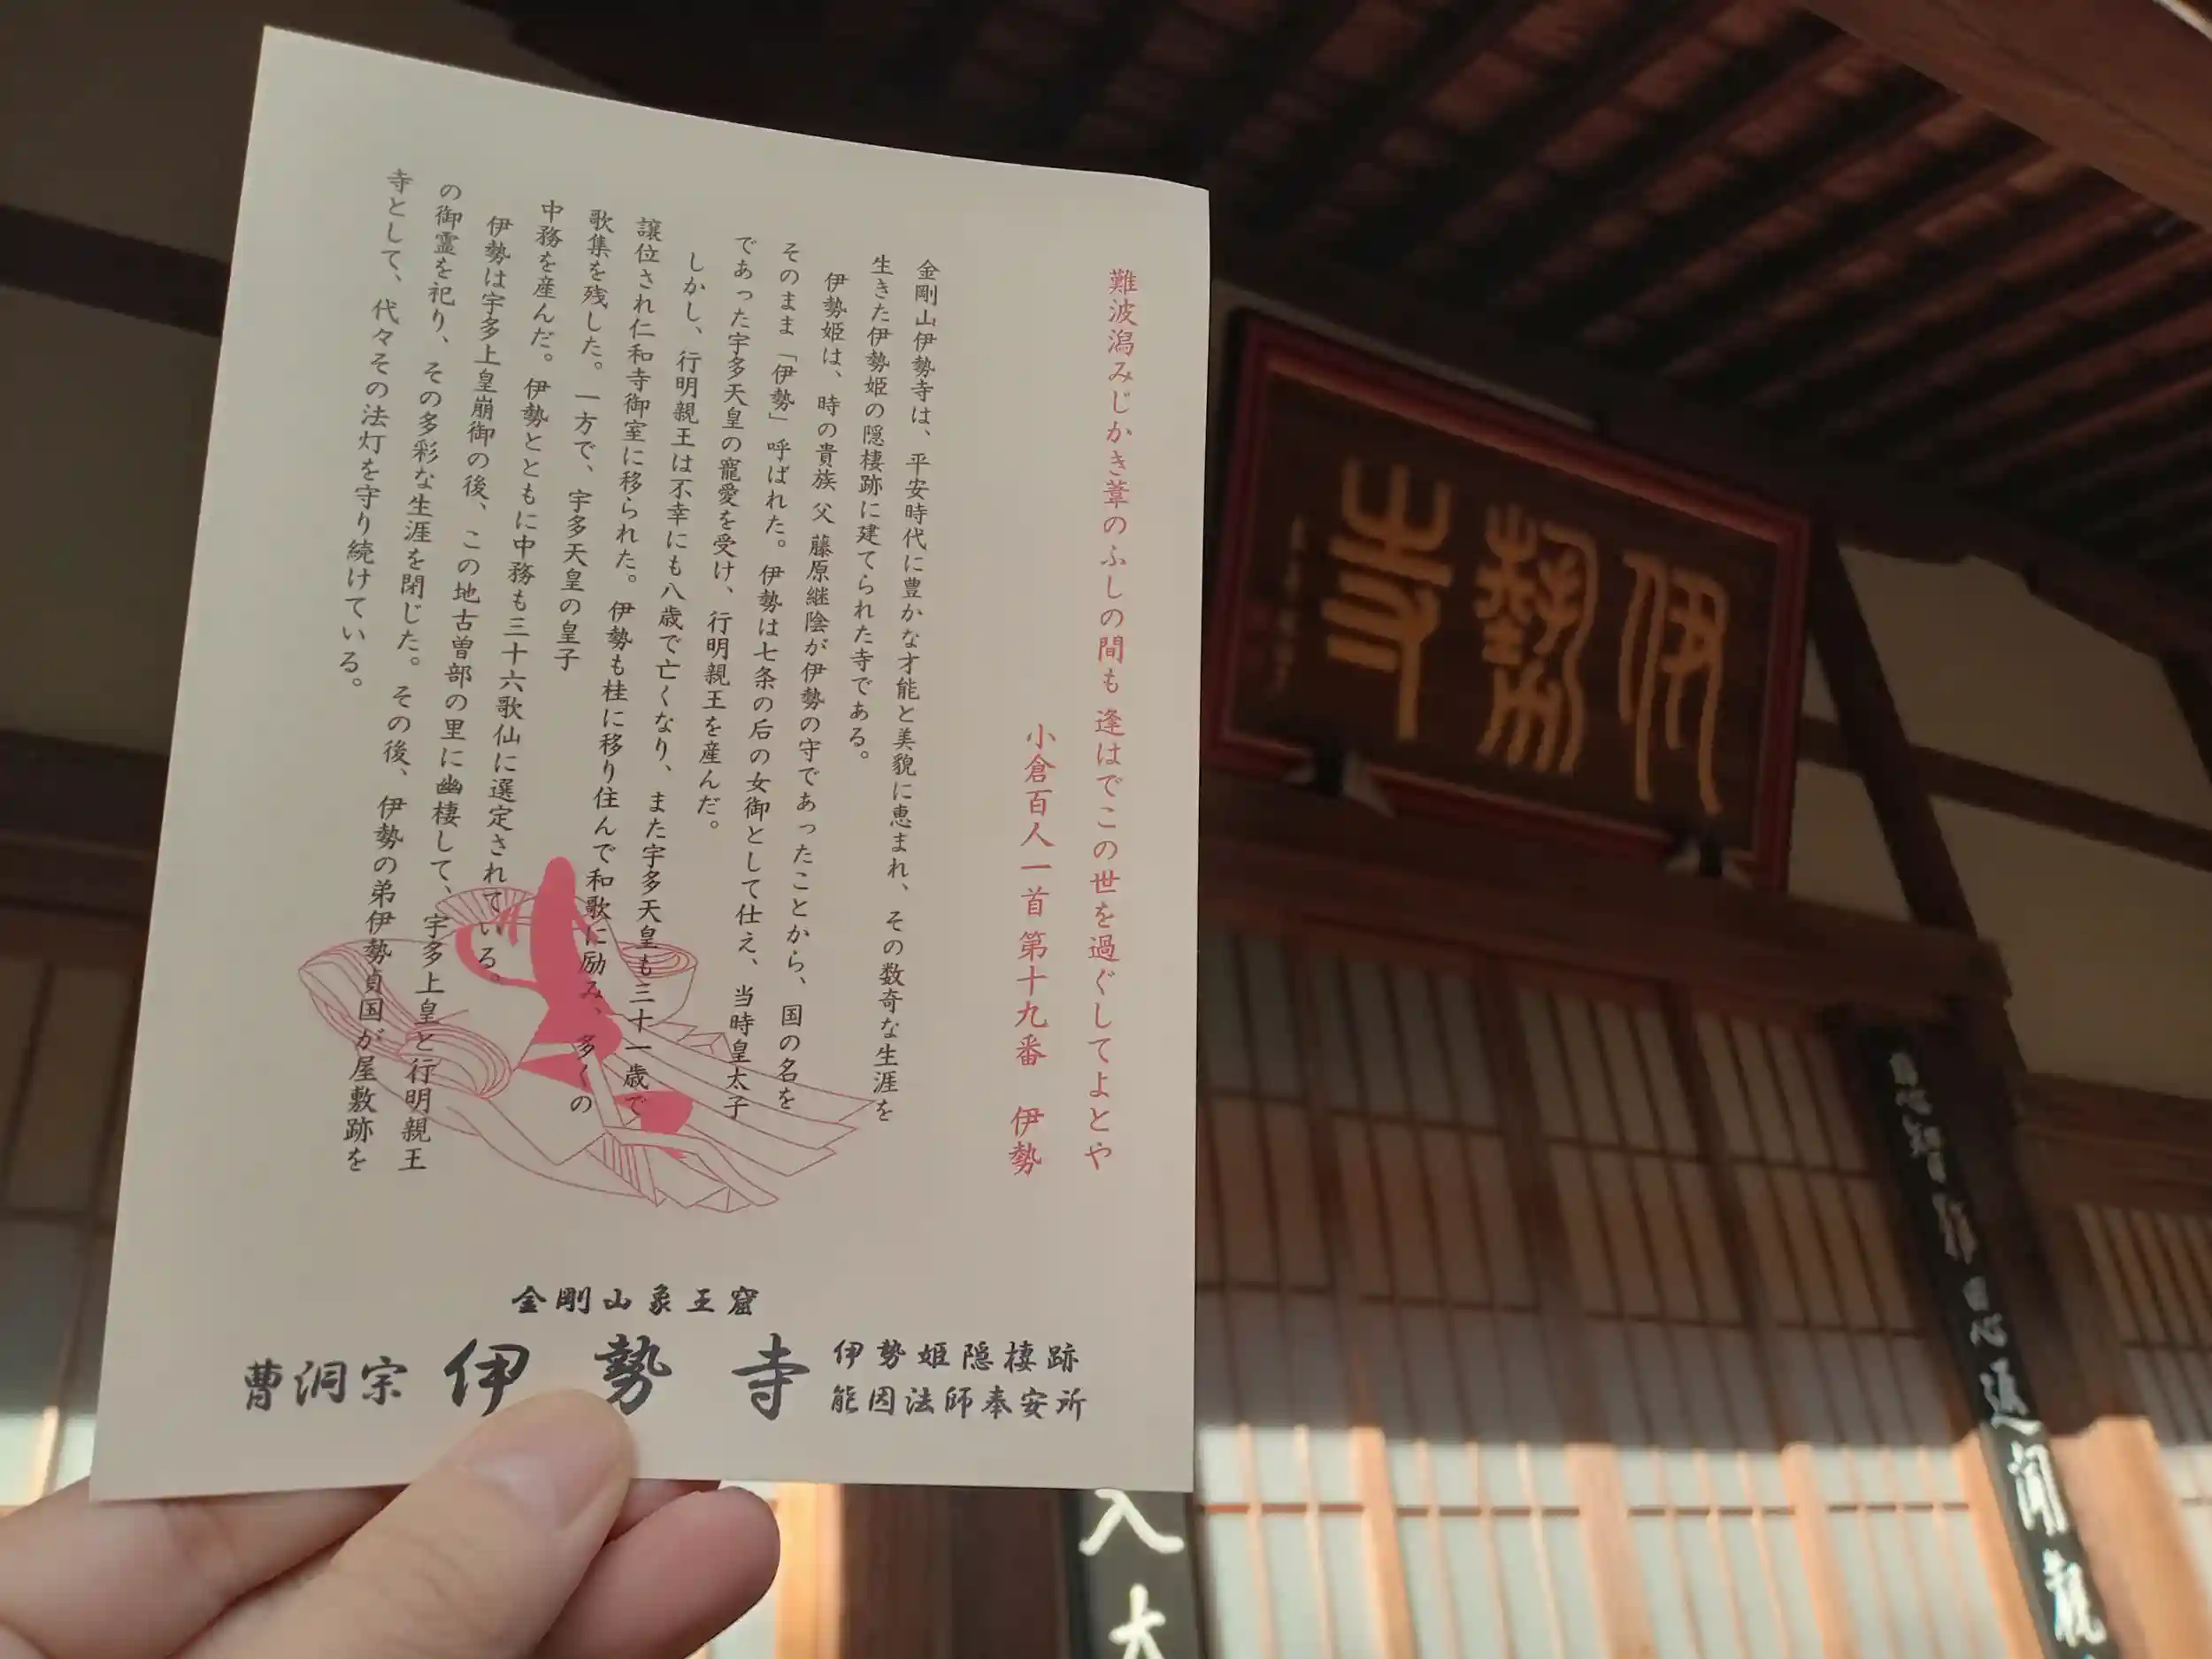 難波潟みじかき葦のふしの間も 逢はでこの世を過ぐしてよとや
小倉百人一首 第十九番 伊勢
金剛山伊勢寺は、平安時代に豊かな才能と美貌に恵まれ、その数奇な生涯を
生きた伊勢姫の隠棲跡に建てられた寺である。
伊勢姫は、時の貴族 父 藤原継陰が伊勢の守であったことから、国の名を
そのまま「伊勢」呼ばれた。伊勢は七条の后の女御として仕え、当時皇太子
であった宇多天皇の寵愛を受け、行明親王を産んだ。
しかし、行明親王は不幸にも八歳で亡くなり、また宇多天皇も三十一歳で
譲位され仁和寺御室に移られた。伊勢も桂に移り住んで和歌に励み、多くの
歌集を残した。一方で、宇多天皇の皇子
中務を産んだ。伊勢とともに中務も三十六歌仙に選定されている。
伊勢は宇多上皇崩御の後、この地古曽部の里に幽棲して、宇多上皇と行明親王
の御霊を祀り、その多彩な生涯を閉じた。その後、伊勢の弟伊勢貞国が屋敷跡を
寺として、代々その法灯を守り続けている。
金剛山象王窟
曹洞宗 伊勢寺
伊勢姫隠棲跡
能因法師奉安所
伊勢寺
入大